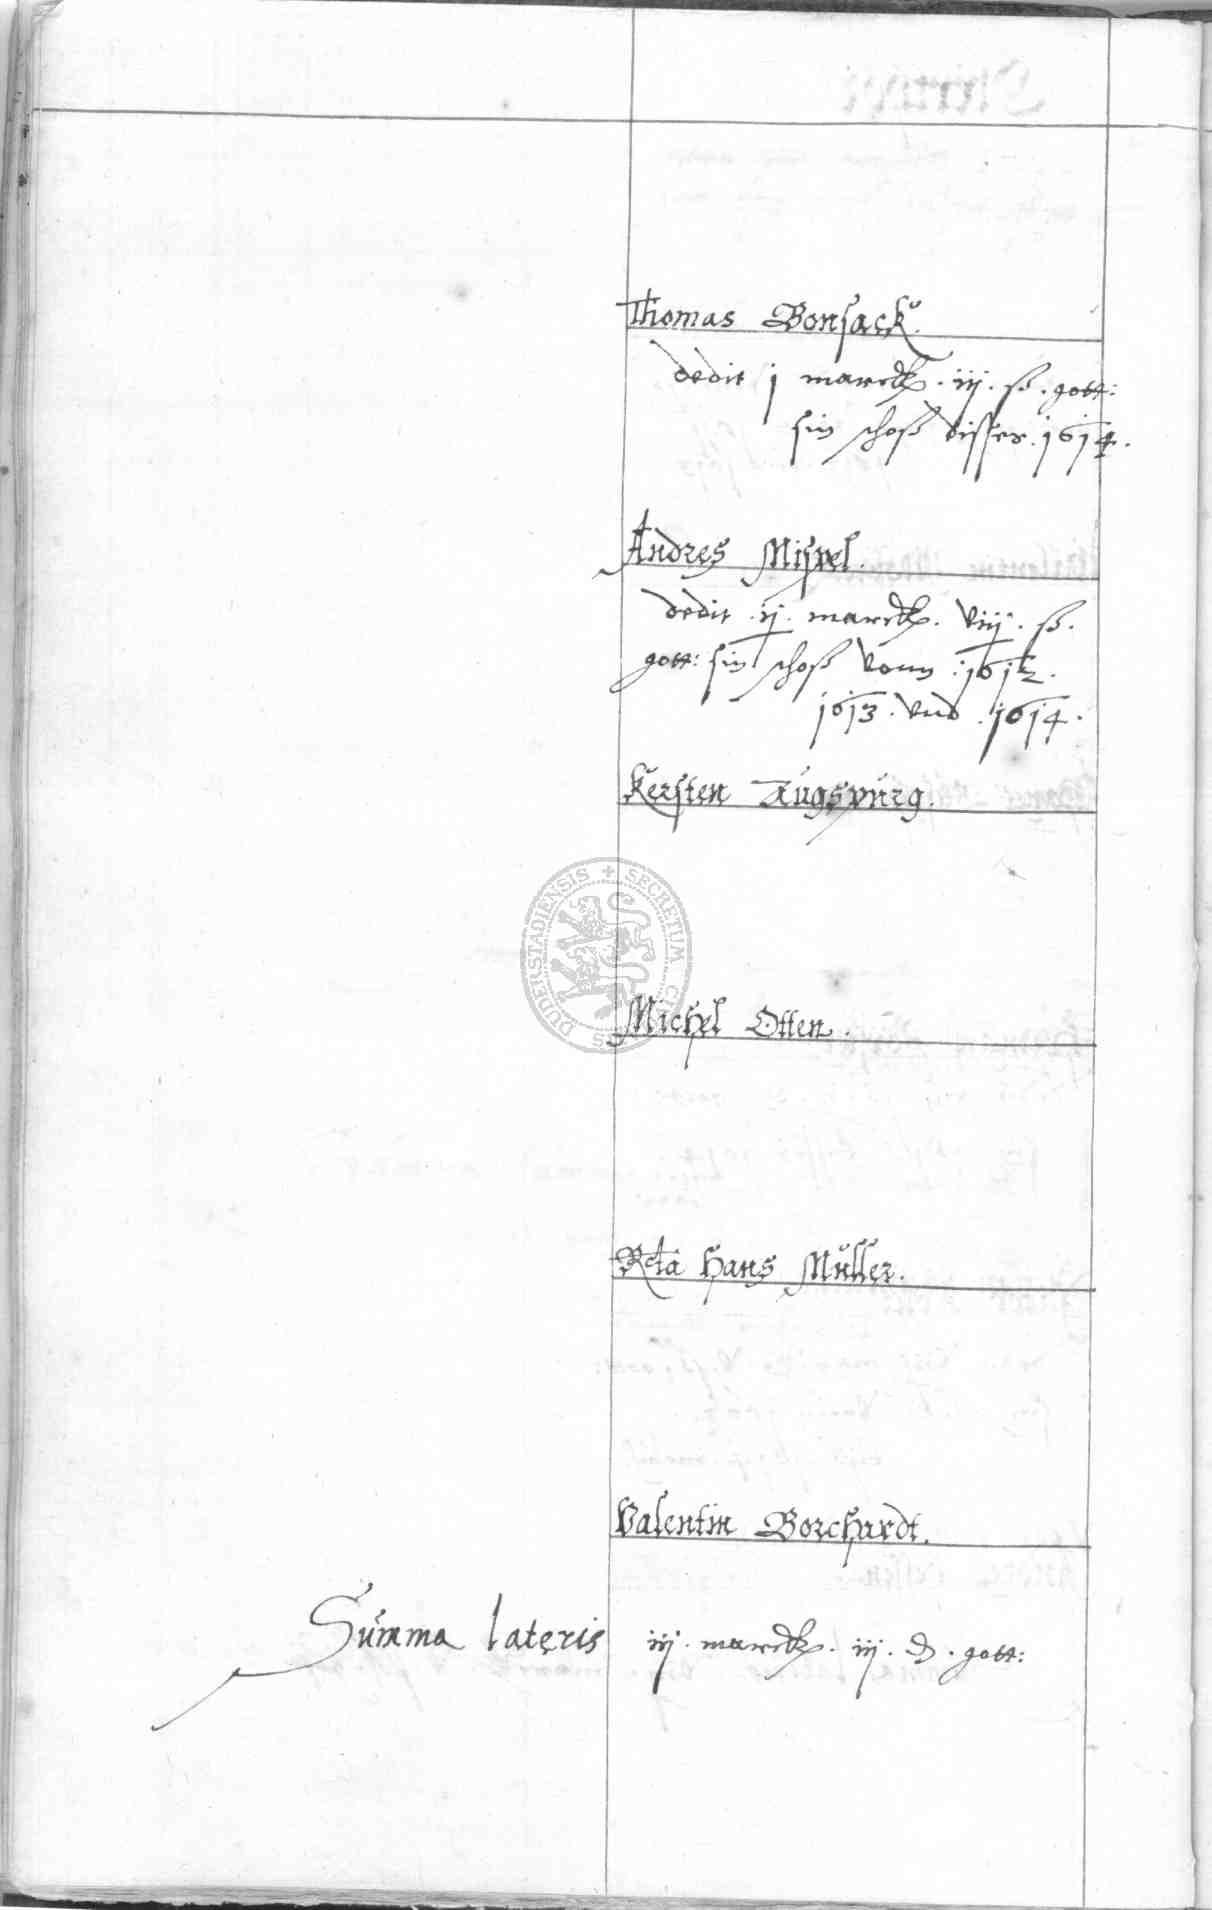 Thomas Bonsack.
dedit j marck. iij. ß. gott:
sin schoß disser. 1614.
Andres Mispel.
dedit .ij. marck. viij. ß.
gott: sin schoß vonn .1612.
1613. vnd .1614.
Kersten Augspurg.
Michel Otten.
Rcta Hans Müller.
Valentin Borchardt.
Summa lateris iij. marck. iij. ₰. gott:
SECRETUM
DUDERSTADIENSIS